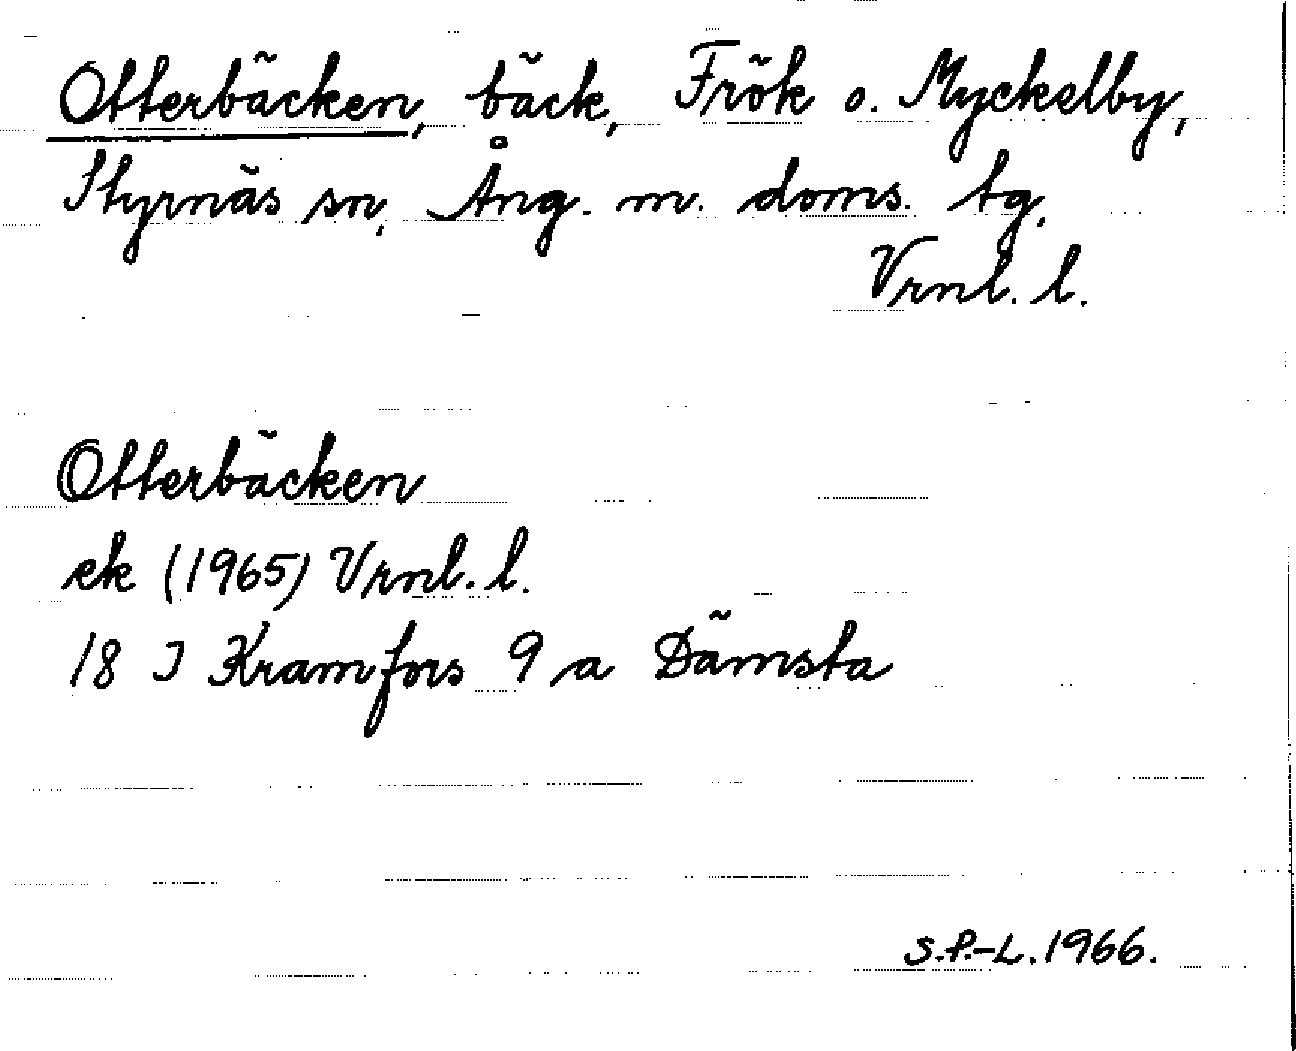 Otterbäcken, bäck, Frök o. Myckelby,
Styrnäs sn, Ång. m. doms. tg.
Vrnl. l.
Otterbäcken
ek (1965) Vrnl. l.
18 I Kramfors 9 a Dämsta
S.P.-L. 1966.